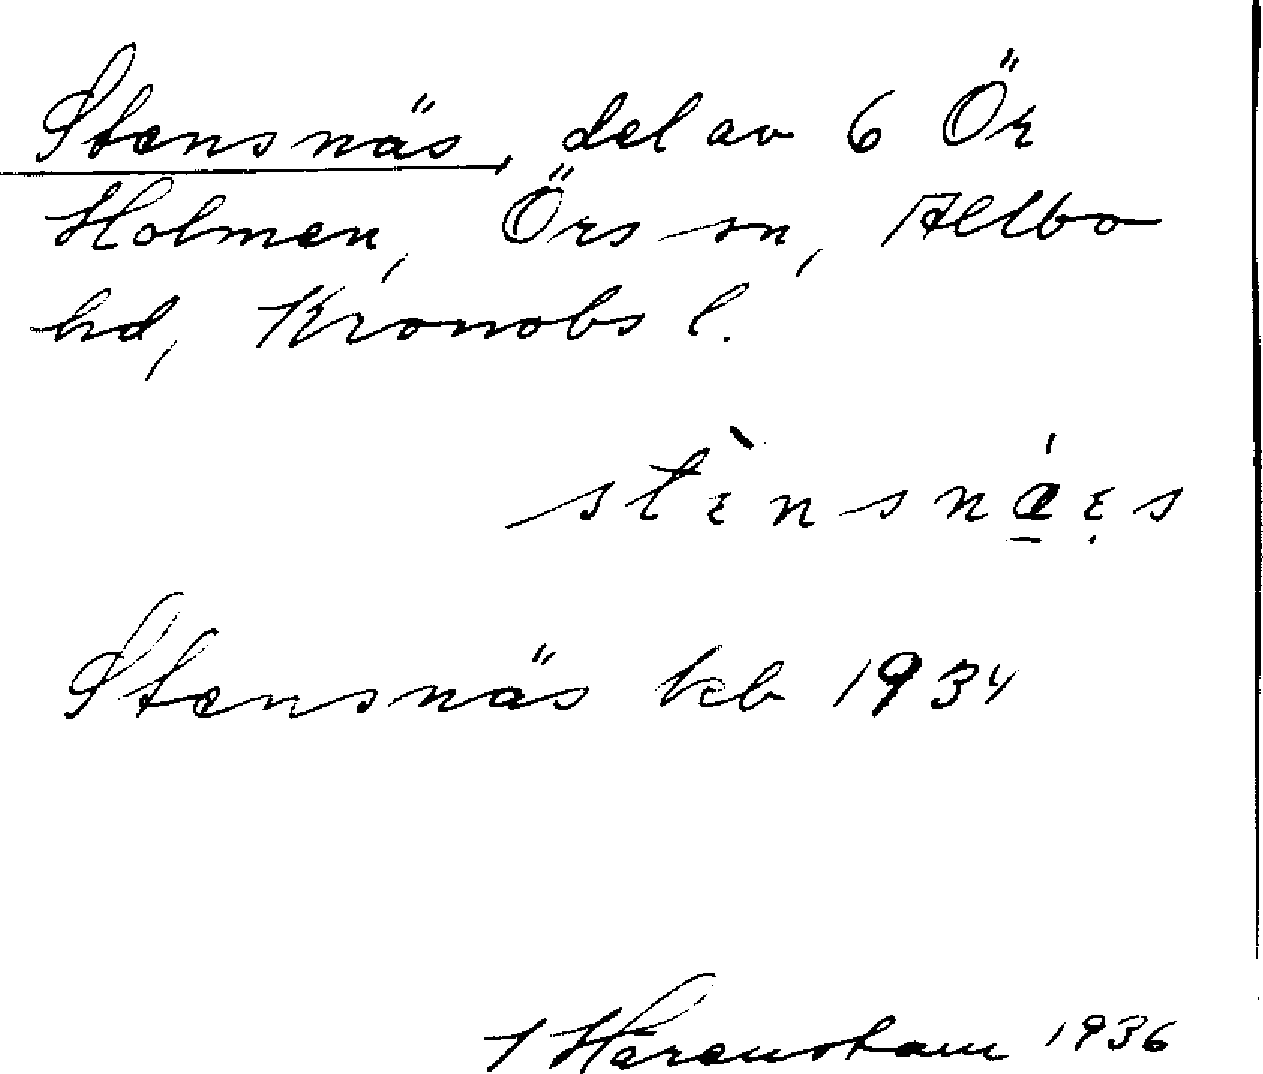 Stensnäs, del av 6 Ör
Holmen, Örs sn, Allbo
hd, Kronobs l.
stɛ̀nsnǽɛ̣s
Stensnäs kb 1934
1936